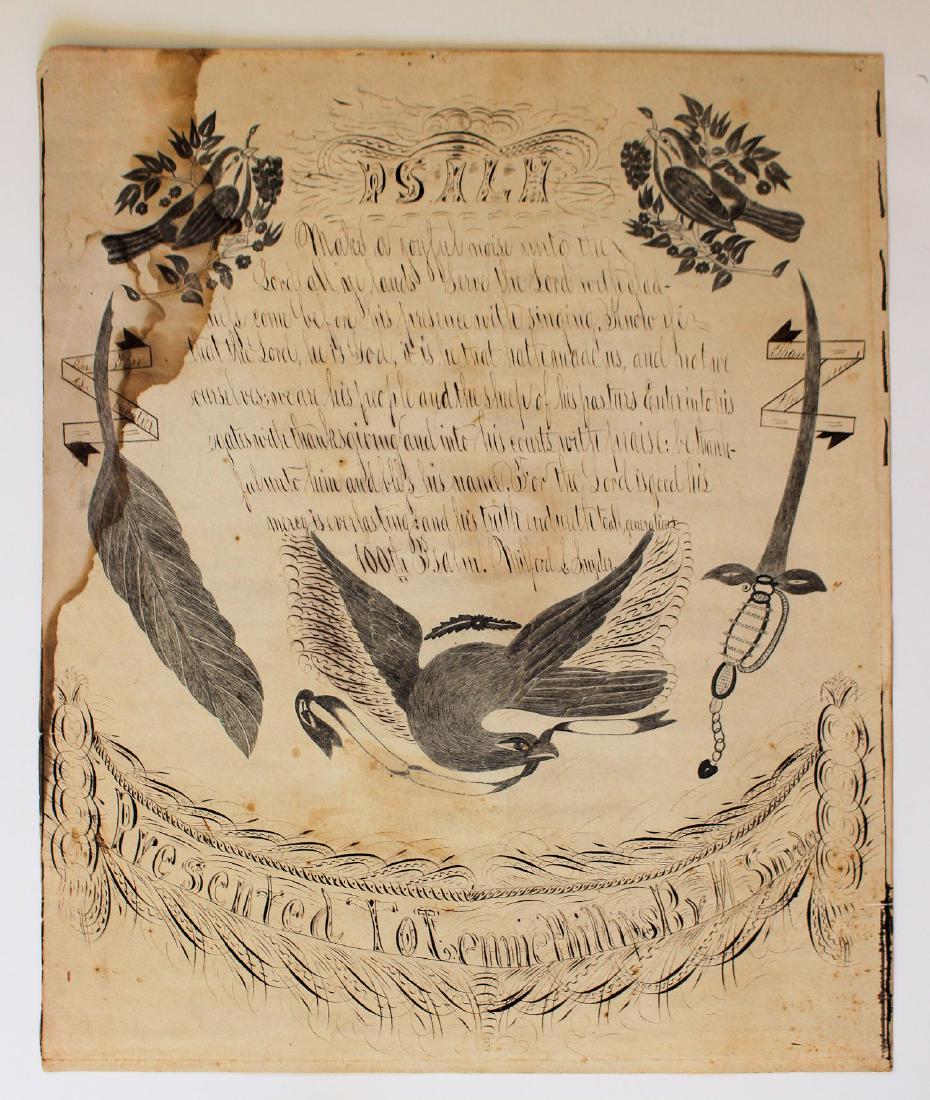 PSALM
Make a joyful noise unto the
Lord all ye lands Serve the Lord with glad-
nefs come before his presence with singing. Know ye
that the Lord, he is God, it is he that hath made us, and not we
ourselves; we are his people and the sheep of his pasture Enter into his
gates with thanksgiving and into his courts with praise: be thank-
ful unto him and blefs his name. For the Lord is good his
mercy is everlasting and his truth endureth to all generations
100th Psalm. Milford Snyder
than
Presented To Lennie Phillips By M Snyder